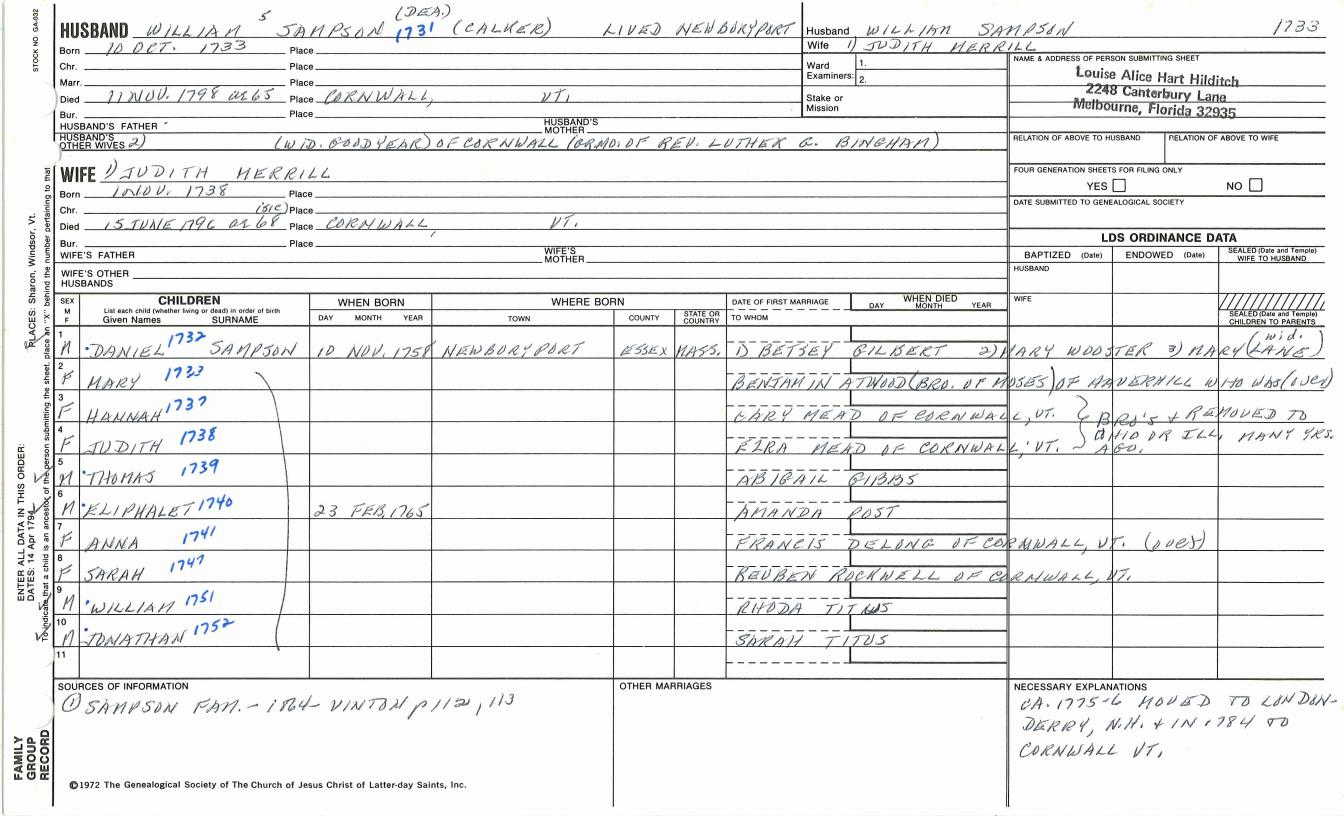 STOCK NO. GA-032
HUSBAND WILLIAM 5 SAMPSON (DEA.) 1731 (CALKER) LIVED NEWBURYPORT
Born 10 OCT. 1733 Place
Chr. Place
Marr. Place
Died 11 NOV. 1798 ae 65 Place CORNWALL, VT.
Bur. Place
HUSBAND'S FATHER HUSBAND'S MOTHER
HUSBAND'S OTHER WIVES 2) (WID. GOODYEAR) OF CORNWALL (GRMO. OF REV. LUTHER G. BINGHAM)
Husband WILLIAM SAMPSON 1733
Wife 1) JUDITH MERRILL
Ward Examiners: 1.
2.
Stake or Mission
NAME & ADDRESS OF PERSON SUBMITTING SHEET
Louise Alice Hart Hilditch
2248 Canterbury Lane
Melbourne, Florida 32935
RELATION OF ABOVE TO HUSBAND RELATION OF ABOVE TO WIFE
FOUR GENERATION SHEETS FOR FILING ONLY
YES NO
DATE SUBMITTED TO GENEALOGICAL SOCIETY
WIFE 1) JUDITH MERRILL
Born 1 NOV. 1738 Place
Chr. (sic) Place
Died 15 JUNE 1796 ae 68 Place CORNWALL, VT.
Bur. Place
WIFE'S FATHER WIFE'S MOTHER
WIFE'S OTHER HUSBANDS
LDS ORDINANCE DATA
BAPTIZED (Date) ENDOWED (Date) SEALED (Date and Temple) WIFE TO HUSBAND
HUSBAND
WIFE
SEALED (Date and Temple) CHILDREN TO PARENTS
SEX M F CHILDREN List each child (whether living or dead) in order of birth Given Names SURNAME WHEN BORN DAY MONTH YEAR WHERE BORN TOWN COUNTY STATE OR COUNTRY DATE OF FIRST MARRIAGE TO WHOM WHEN DIED DAY MONTH YEAR
1 M DANIEL 1732 SAMPSON 10 NOV. 1758 NEWBURYPORT ESSEX MASS. 1) BETSEY GILBERT 2) MARY WOOSTER 3) MARY (wid. LANE)
2 F MARY 1733 BENJAMIN ATWOOD (BRO. OF MOSES) OF HAVERHILL WHO WAS (OVER)
3 F HANNAH 1737 GARY MEAD OF CORNWALL, VT. } BRO'S & REMOVED TO
4 F JUDITH 1738 EZRA MEAD OF CORNWALL, VT. } OHIO OR ILL. MANY YRS. AGO.
5 M THOMAS 1739 ABIGAIL GIBBS
6 M ELIPHALET 1740 23 FEB. 1765 AMANDA POST
7 F ANNA 1741 FRANCIS DELONG OF CORNWALL, VT. (OVER)
8 F SARAH 1747 REUBEN ROCKWELL OF CORNWALL, VT.
9 M WILLIAM 1751 RHODA TITUS
10 M JONATHAN 1752 SARAH TITUS
11
SOURCES OF INFORMATION
① SAMPSON FAM. - 1864 - VINTON p 112, 113
OTHER MARRIAGES
NECESSARY EXPLANATIONS
CA. 1775-6 MOVED TO LONDON-
DERRY, N.H. & IN 1784 TO
CORNWALL VT.
©1972 The Genealogical Society of The Church of Jesus Christ of Latter-day Saints, Inc.
FAMILY GROUP RECORD
ENTER ALL DATA IN THIS ORDER:
DATES: 14 Apr 1794
PLACES: Sharon, Windsor, Vt.
To indicate that a child is an ancestor of the person submitting the sheet, place an "X" behind the number pertaining to that